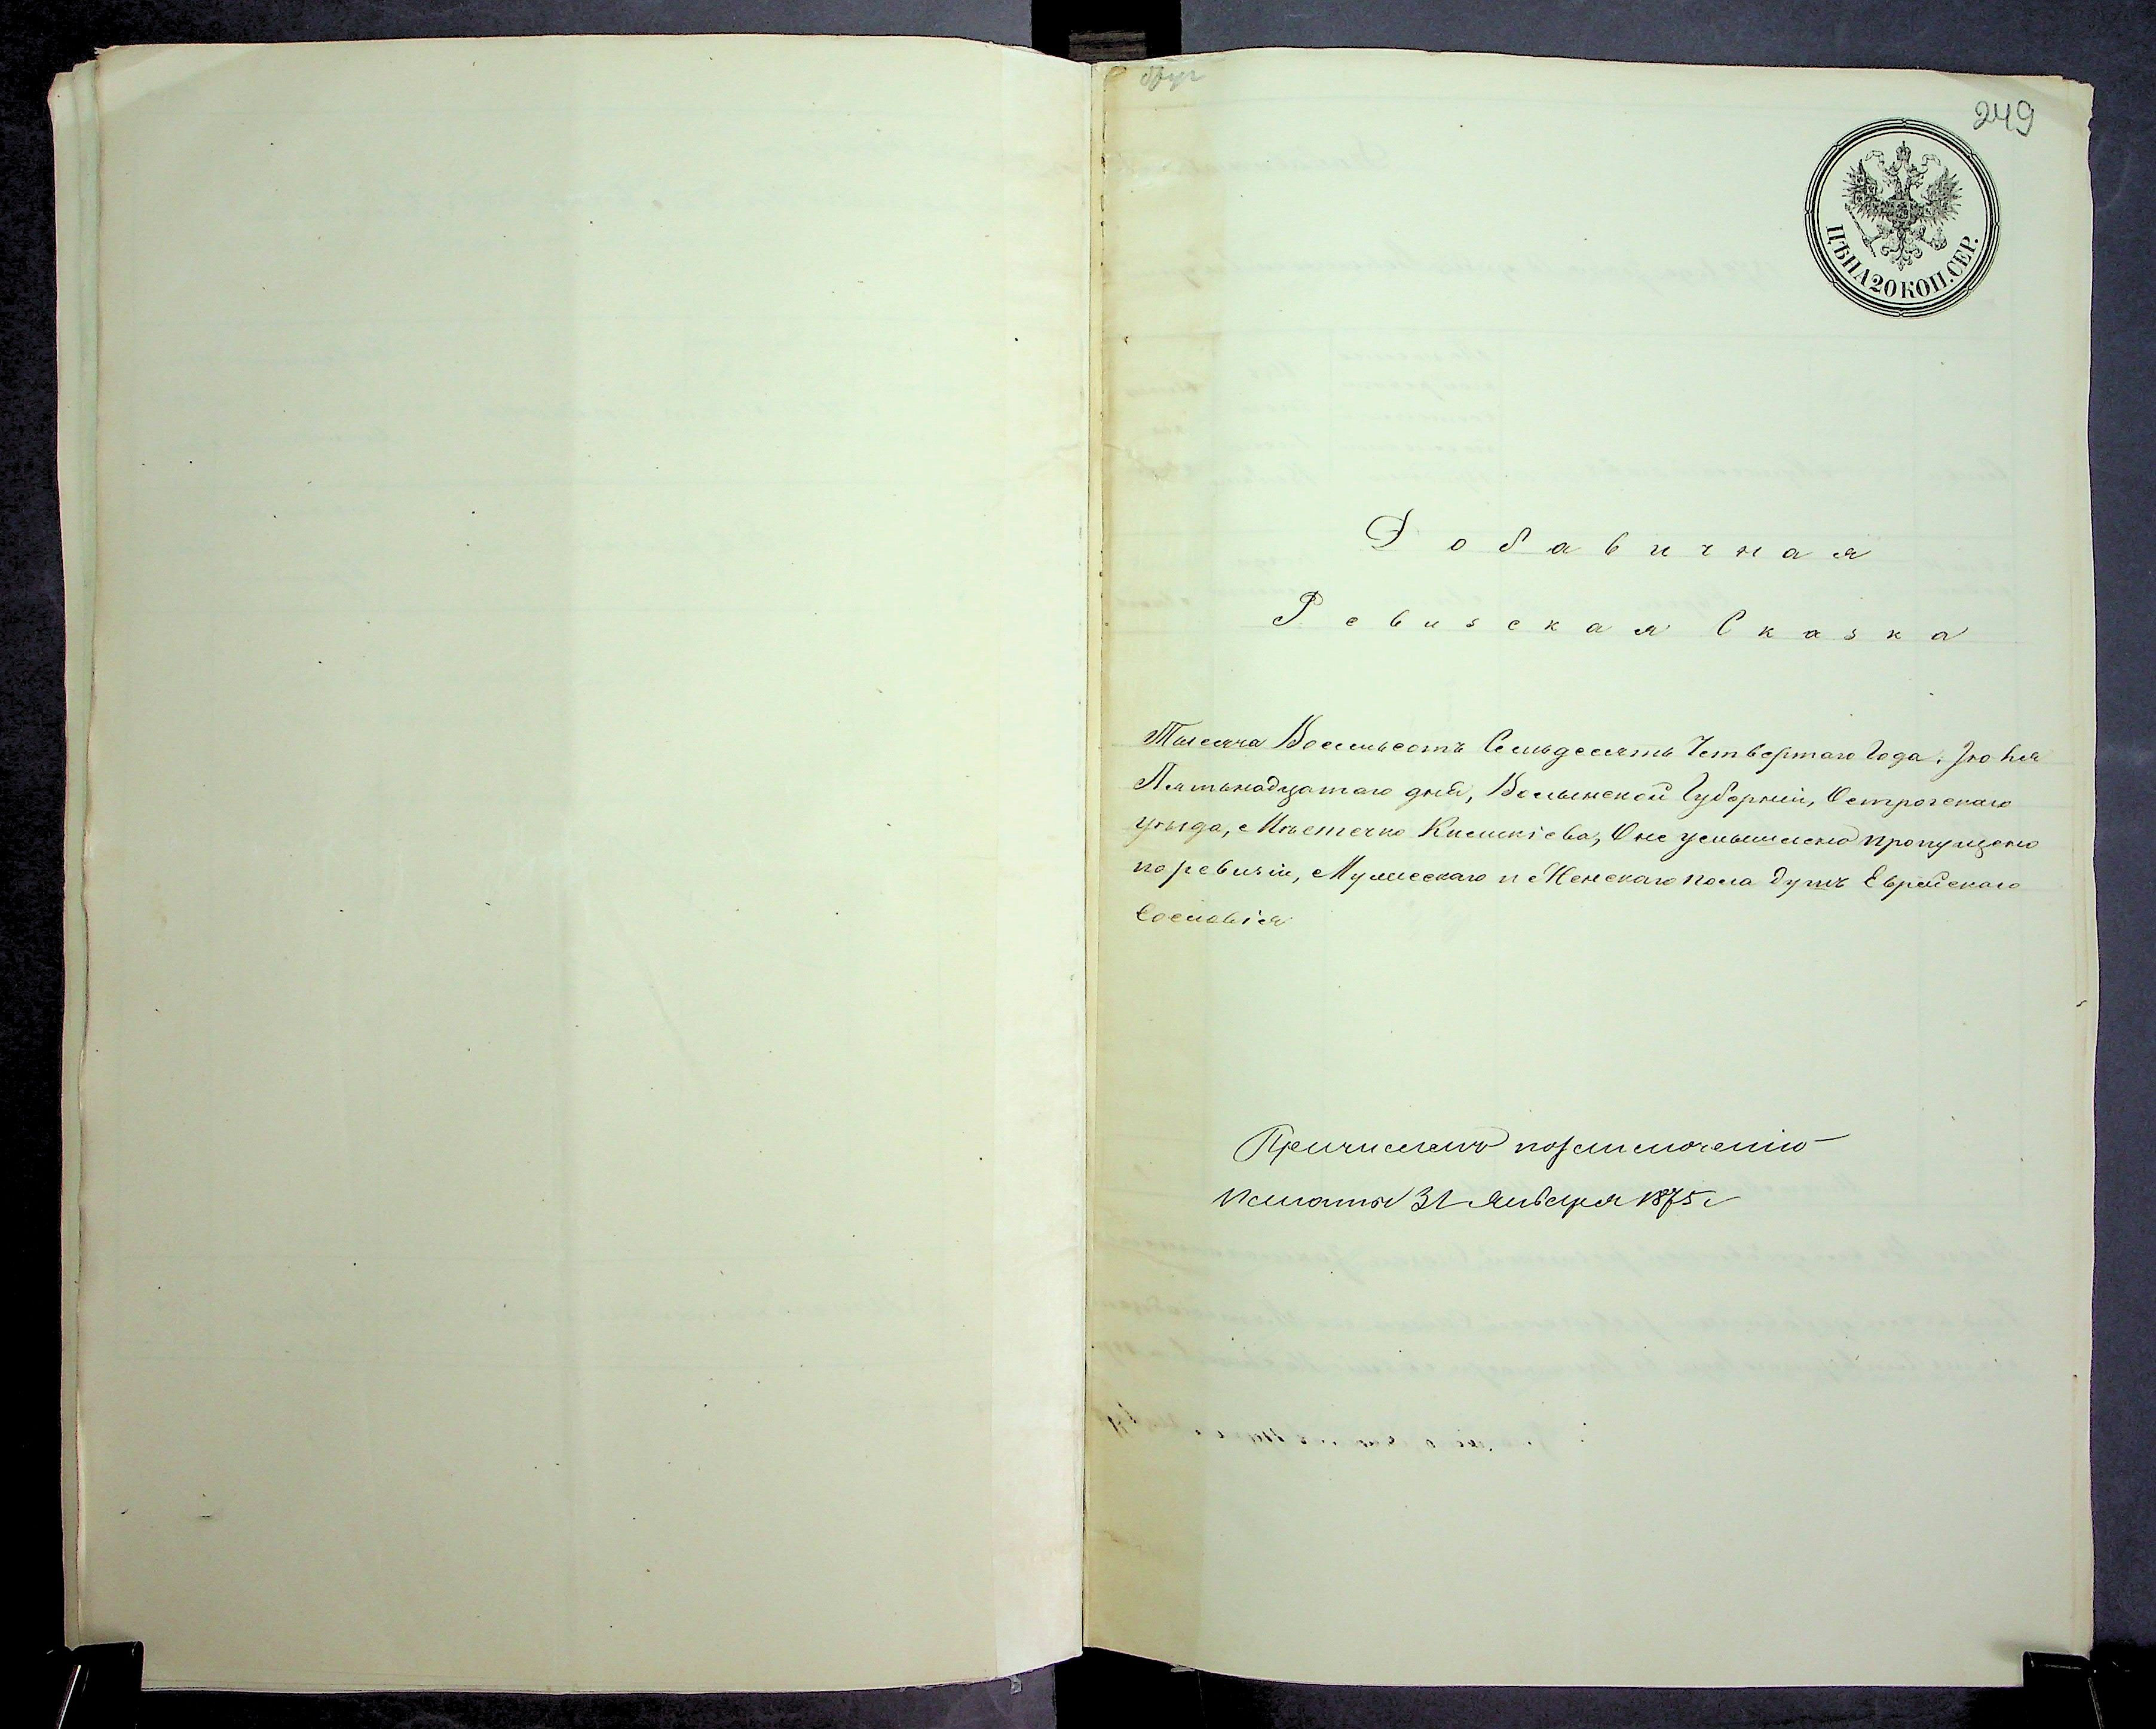 249
ЦѢНА 20 КОП. СЕР.
Добавичная
Ревизская Сказка
Тысяча Восемьсотъ Семьдесять Четвертаго Года, Іюня
Пятьнадцатаго дня, Волынской Губерніи, Острогскаго
уѣзда, Мѣстечко, О не умышлено пропущено
по ревизіи, Мужескаго и Женскаго пола душъ Еврейскаго
Сословія
Причислены
Палаты 31 Января 1875 г